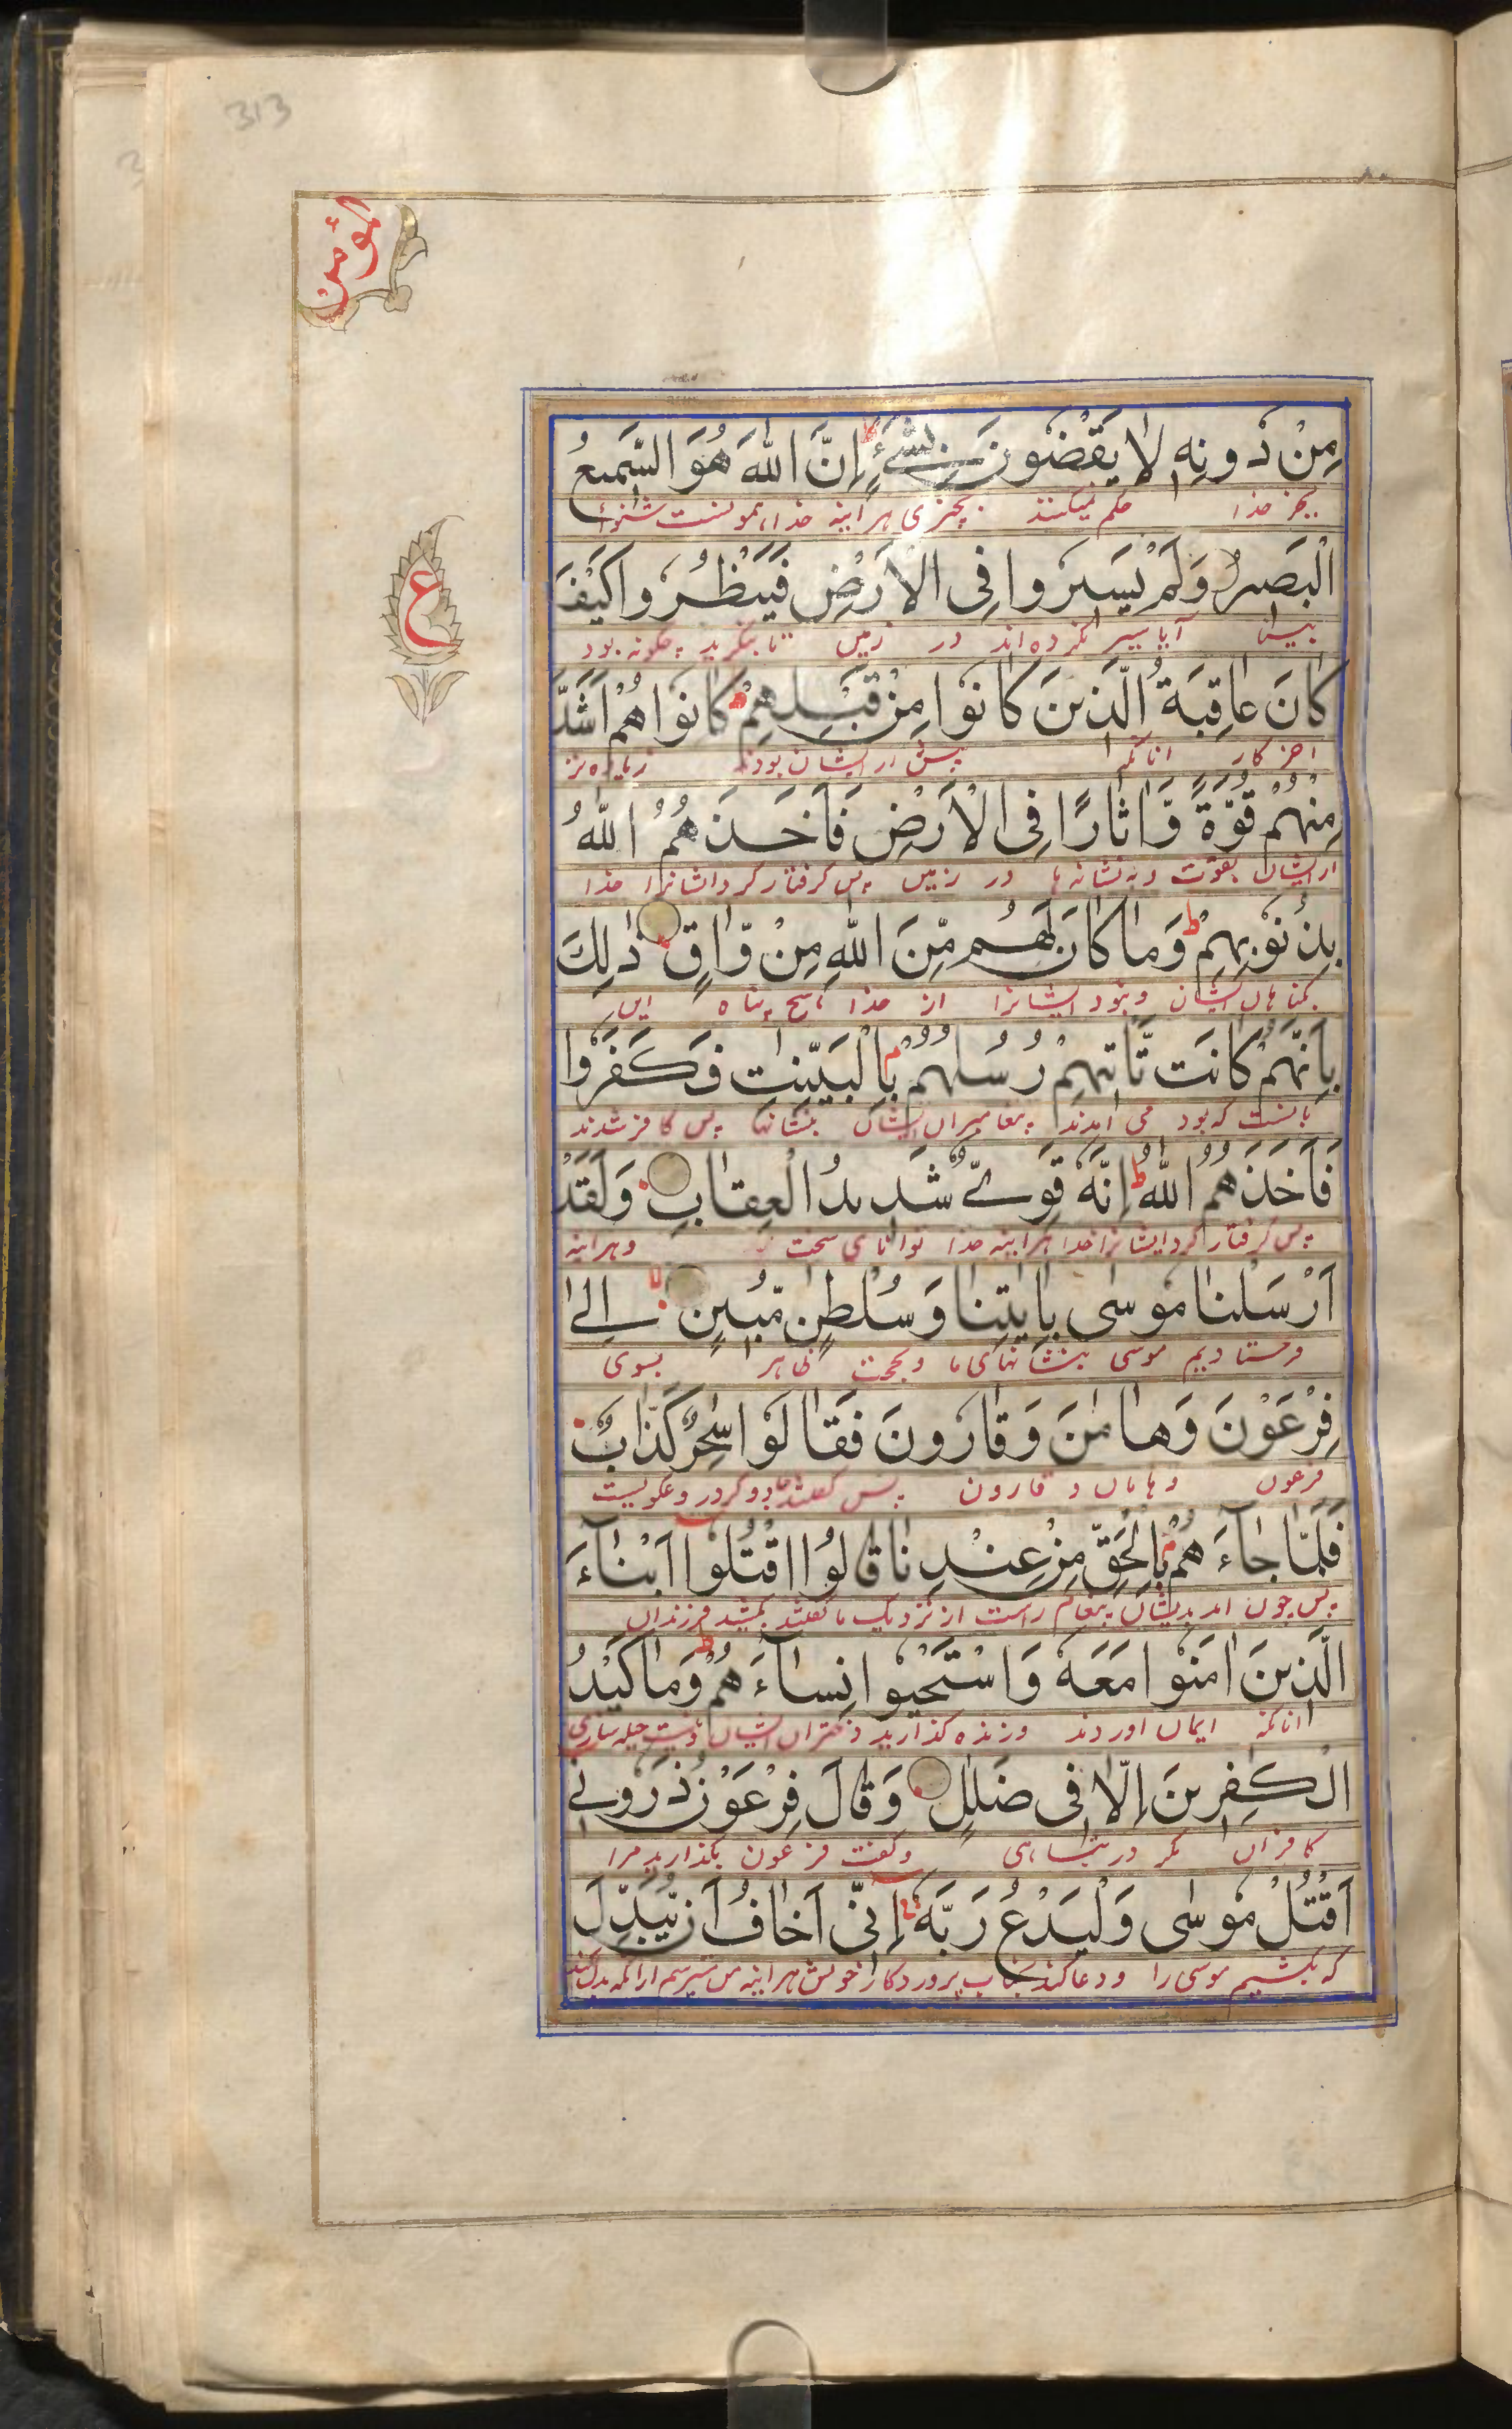 313
المؤمن
مِنْ دُونِهٖ لَا يَقْضُونَ بِشَيْءٍ ؕ اِنَّ اللّٰهَ هُوَ السَّمِيعُ
بجز خدا حکم نمیکنند بچیزی هر اینه خدا همونست شنوا
الْبَصِيرُ وَلَمْ يَسِيرُوا فِى الْاَرْضِ فَيَنْظُرُوا كَيْفَ
بینا آیا سیر نکرده اند در زمین تا بنگرند چگونه بود
ع
كَانَ عَاقِبَةُ الَّذِينَ كَانُوْا مِنْ قَبْلِهِمْ ؕ كَانُوْا هُمْ اَشَدَّ
اخر کار انانکه پیش از ایشان بودند زیاده تر
مِنْهُمْ قُوَّةً وَّاٰثَارًا فِى الْاَرْضِ فَاَخَذَهُمُ اللّٰهُ
از ایشان بقوت و به نشانه ها در زمین پس گرفتار کرد ایشانرا خدا
بِذُنُوْبِهِمْ ؕ وَمَا كَانَ لَهُمْ مِّنَ اللّٰهِ مِنْ وَّاقٍ ذٰلِكَ
بگناهان ایشان و نبود ایشانرا از خدا هیچ پناه این
بِاَنَّهُمْ كَانَت تَّاْتِيْهِمْ رُسُلُهُمْ بِالْبَيِّنٰتِ فَكَفَرُوْا
بانست که بود می امدند پیغامبران ایشان بنشانها پس کافر شدند
فَاَخَذَهُمُ اللّٰهُ ؕ اِنَّهٗ قَوِىٌّ شَدِيدُ الْعِقَابِ وَلَقَدْ
پس گرفتار کرد ایشانرا خدا هر اینه خدا توانای سخت و هر اینه
اَرْسَلْنَا مُوسٰى بِاٰيٰتِنَا وَسُلْطٰنٍ مُّبِيْنٍ لا اِلٰى
فرستادیم موسی بنشانهای ما و بحجت ظاهر بسوی
فِرْعَوْنَ وَهَامٰنَ وَقَارُونَ فَقَالُوْا سٰحِرٌ كَذَّابٌ
فرعون و هامان و قارون پس گفتند جادوگر دروغگویست
فَلَمَّا جَآءَهُمْ بِالْحَقِّ مِنْ عِنْدِنَا قَالُوا اقْتُلُوْا اَبْنَآءَ
پس چون امد بدیشان پیغام راست از نزدیک ما گفتند بکشید فرزندان
الَّذِينَ اٰمَنُوْا مَعَهٗ وَاسْتَحْيُوْا نِسَآءَهُمْ ؕ وَمَا كَيْدُ
انانکه ایمان اوردند و زنده گذارید دختران ایشان و نیست حیله سازی
الْكٰفِرِينَ اِلَّا فِى ضَلٰلٍ وَقَالَ فِرْعَوْنُ ذَرُونِىْ
کافران مگر در تباهی و گفت فرعون بگذارید مرا
اَقْتُلْ مُوسٰى وَلْيَدْعُ رَبَّهٗ اِنِّىْ اَخَافُ اَنْ يُّبَدِّلَ
که بکشیم موسی را و دعا کند بجناب پروردگار خویش هر اینه من میترسم از انکه بدل کند